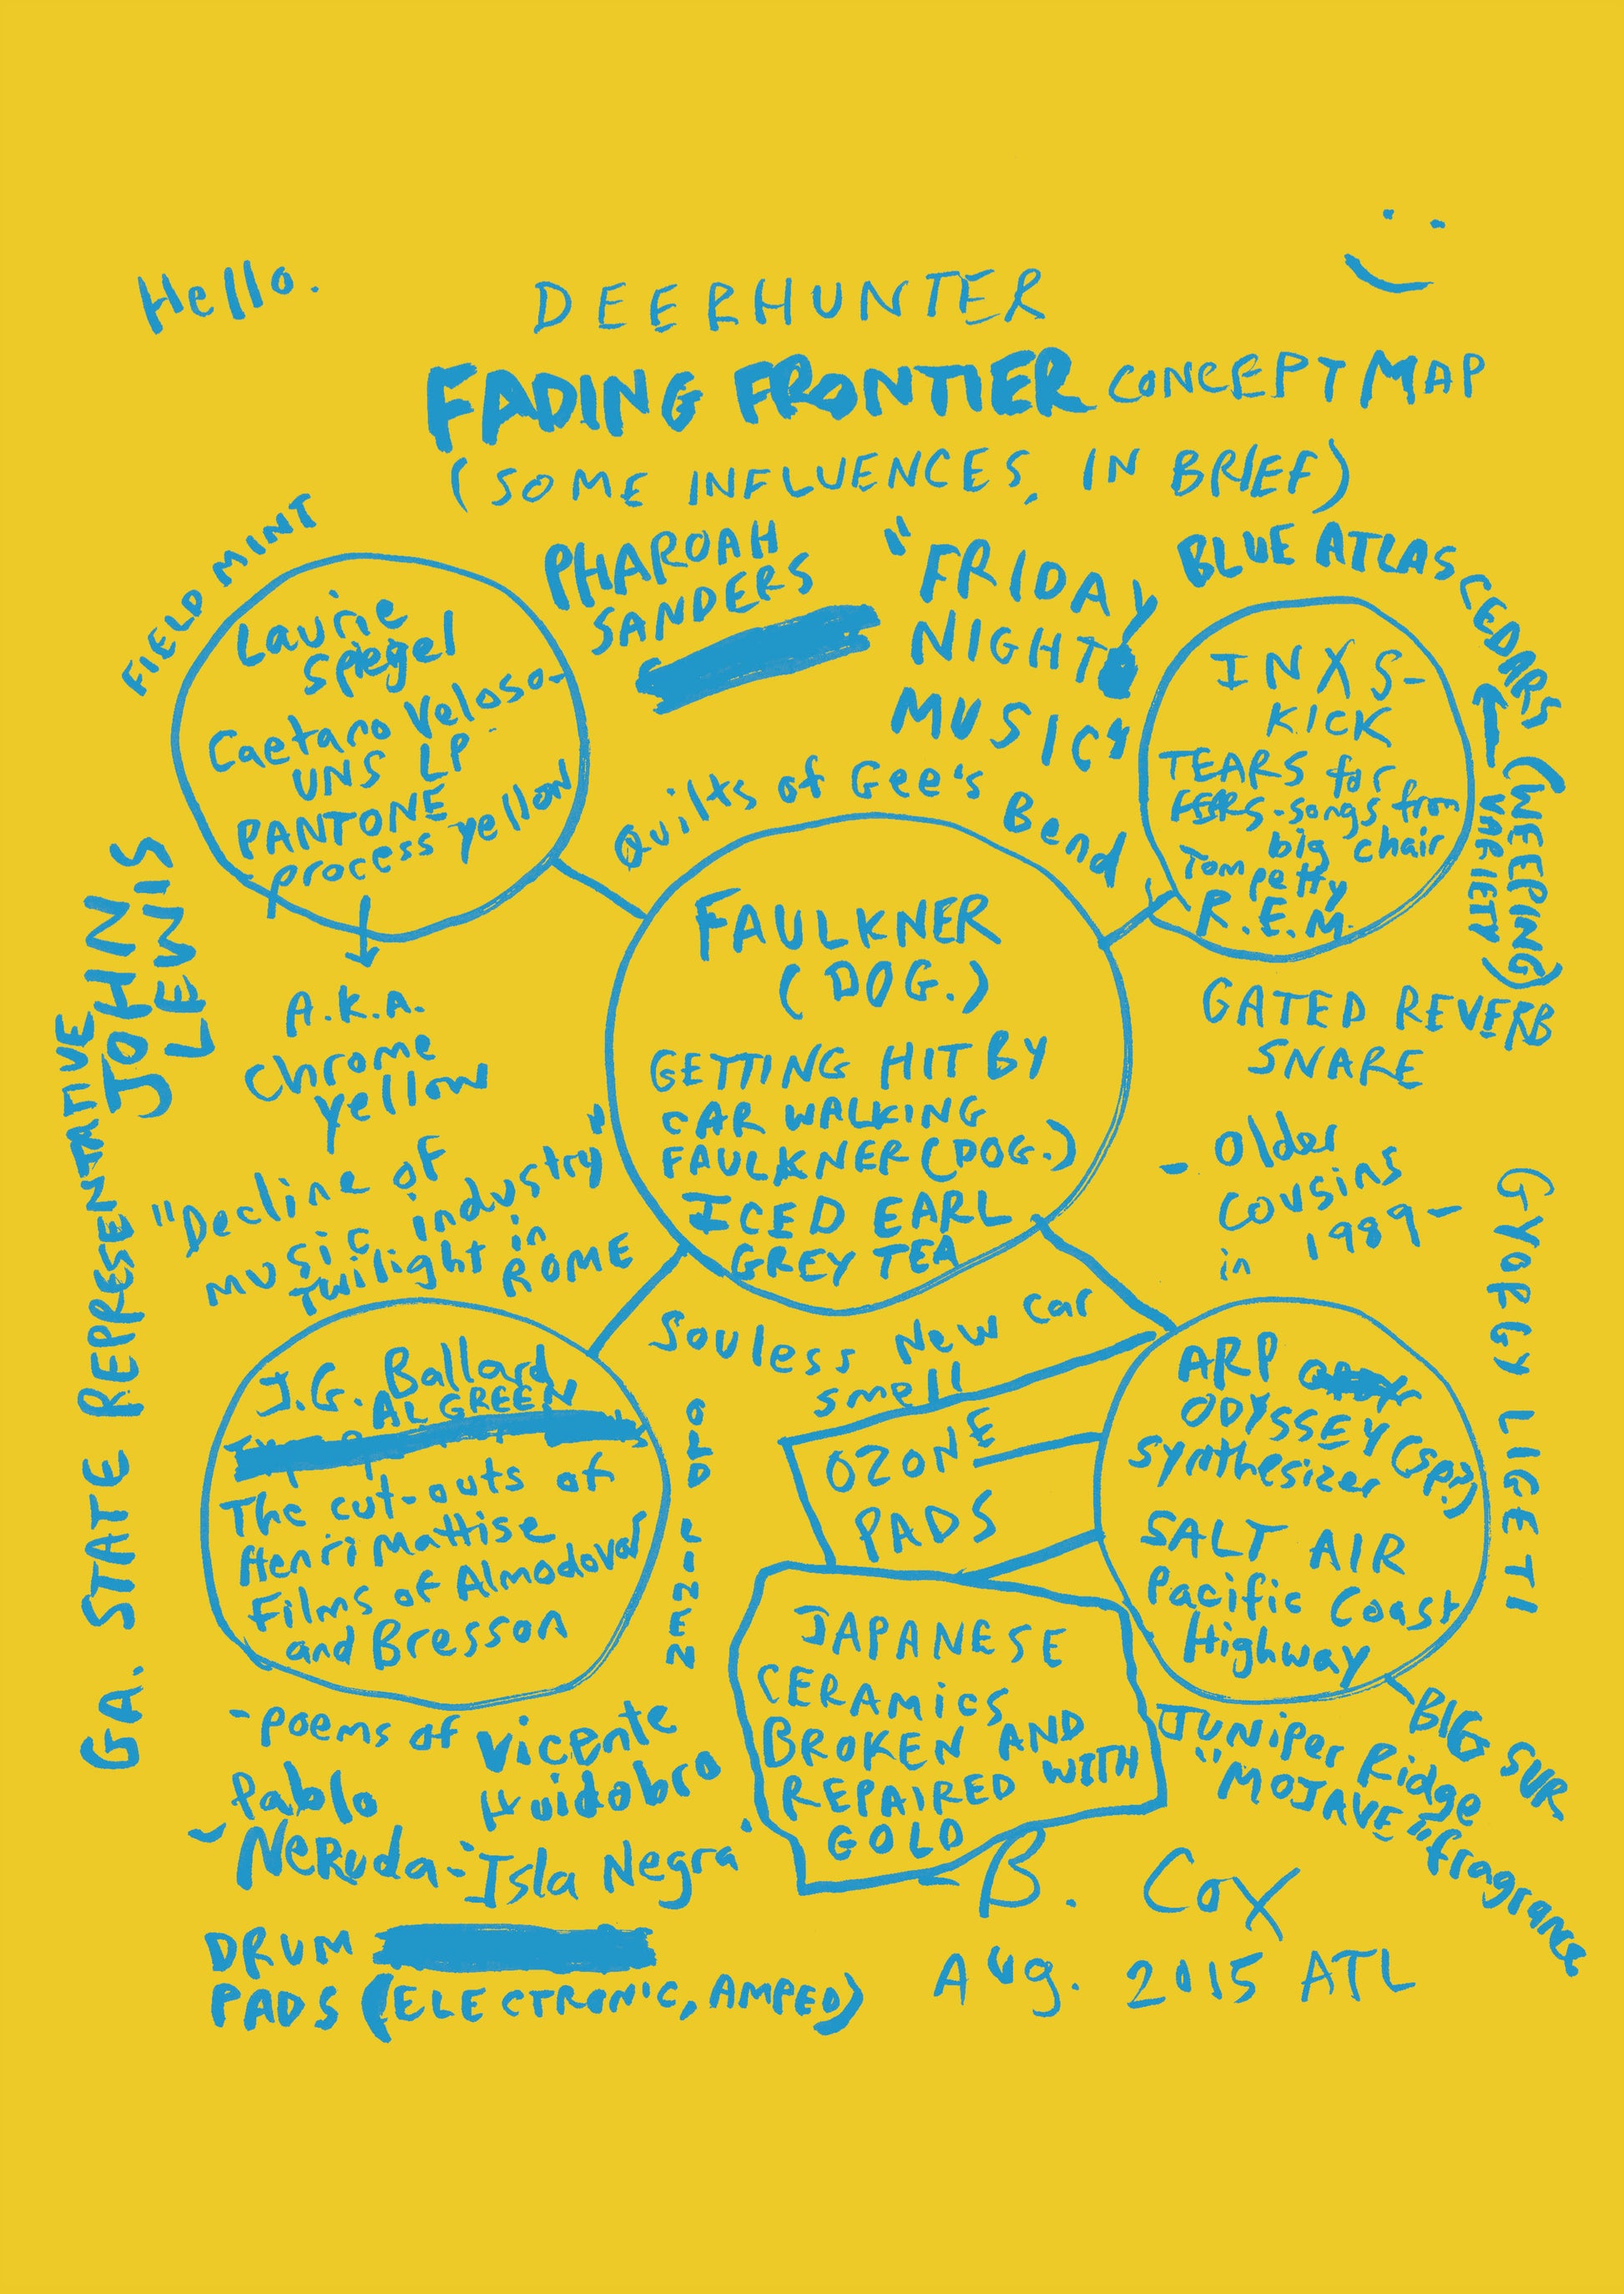 Hello.
DEERHUNTER
FADING FRONTIER CONCEPT MAP
(SOME INFLUENCES, IN BRIEF)
FIELD MINT
Laurie
Spiegel
Caetano Veloso-
UNS LP
PANTONE
process yellow
A.K.A.
Chrome
yellow
PHAROAH
SANDERS
"FRIDAY
NIGHT
MUSIC"
BLUE ATLAS CEDARS (WEEPING)
VARIETY
INXS-
KICK
TEARS for
FEARS-songs from
big chair
Tom petty
R.E.M.
Quilts of Gee's Bend
FAULKNER
(DOG.)
GETTING HIT BY
CAR WALKING
FAULKNER (DOG.)
ICED EARL
GREY TEA
GATED REVERB
SNARE
- Older
Cousins
in 1989-
GA. STATE REPRESENTATIVE
JOHN
LEWIS
"Decline of
music industry"
Twilight in
ROME
GYORGY LIGETI
Souless New Car
smell
J.G. Ballard
AL GREEN
The cut-outs of
Henri Mattise
Films of Almodovar
and Bresson
OLD
OZONE
PADS
ARP
ODYSSEY (sp?)
synthesizer
SALT AIR
Pacific Coast
Highway
JAPANESE
CERAMICS
BROKEN AND
REPAIRED WITH
GOLD
BIG SUR
JUNIPER Ridge
"MOJAVE" fragrance
-poems of Vicente
Huidobro
Pablo
Neruda-'Isla Negra'
DRUM
PADS (ELECTRONIC, AMPED)
B. Cox
Aug. 2015 ATL